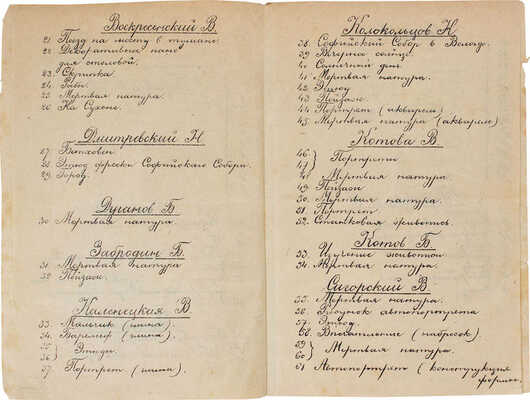 Воскресенский В.
21. Поезд на мосту в тумане.
22. Декоративна пано
для столовой.
23. Скрипка.
24. Грибы.
25. Мертвая натура.
26. На Сухоне.
Дмитревский Н
27. Бетховен
28. Этюд фрески Софийского Собора.
29. Город.
Дуганов Б
30. Мертвая натура.
Забродин Б.
31. Мертвая натура
32. Пейзаж.
Каленецкая В
33. Мальчик (глина).
34. Барельеф (глина).
35
36 } Этюды.
37. Портрет (глина).
Колокольцов Н
38. Софийский Собор в Вологде.
39. Вечерне солнце.
40. Солнечный день.
41. Мертвая натура.
42. Этюд
43. Пейзаж.
44. Портрет (акварель)
45. Мертвая натура (акварель).
Котова В
46
47 } Портреты
48. Мертвая натура.
49. Пейзаж
50. Мертвая натура.
51. Портрет.
52. Станковая живопись.
Котов Б.
53. Изучение живописи
54. Мертвая натура.
Сигорский В
55. Мертвая натура.
56. Рисунок автопортрета
57. Этюд.
58. Впечатление (набросок).
59
60 } Мертвая натура.
61 Автопортрет (конструкция
формы.